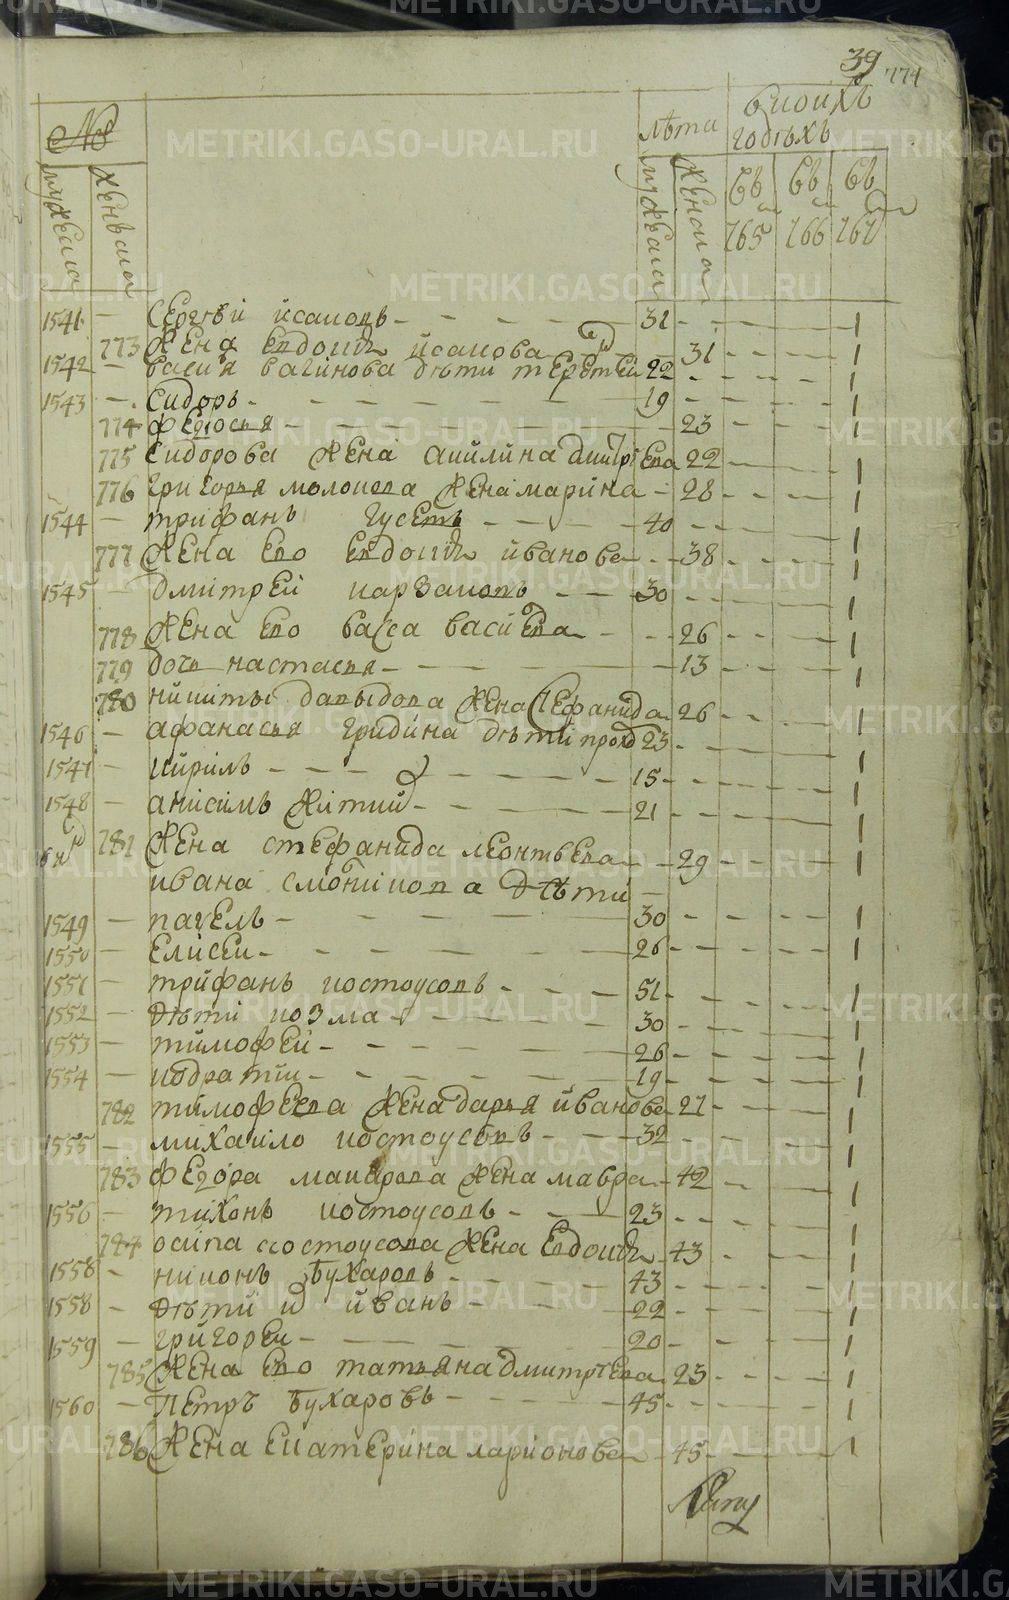 39
774
№
мужеска
женска
лѣта
мужеска
женска
в коихъ
годѣхъ
Въ 765
Въ 766
Въ 767
1541 — Сергѣй Исаковъ — 31
773 Жена Евдокия Исакова 31
1542 — Васил Вагинова дѣти терентей 22
1543 — Сидоръ — 19
774 Федосья — 23
775 Сидорова жена Акилина Дмитриева 22
776 Григорья Молокова жена Марина — 28
1544 — Трифанъ Гусевъ — 40
777 Жена ево Евдокия Иванова — 38
1545 — Дмитрей Карзаковъ — 30
778 Жена ево Васса Василева — 26
779 дочь Настасья — 13
780 Никиты Давыдова жена Стефанида 26
1546 — Афанасья Гридина дѣти прохо 23
1547 — Кирилъ — 15
1548 — Анисимъ Жяткий — 21
781 Жена Стефанида Леонтьева — 29
Ивана Смокникова дѣти —
1549 — Павелъ — 30
1550 — Елисеи — 26
1551 — Трифанъ Костоусовъ — 51
1552 — дѣти Козма — 30
1553 — Тимофей — 26
1554 — Кодратии — 19
782 Тимофеева жена Дарья Иванова 27
1555 — Михаило Костоусовъ — 32
783 Федора Макарова жена Мавра — 42
1556 — Тихонъ Костоусовъ — 23
784 Осипа Костоусова жена Евдокия 43
1558 — Никонъ Бухаровъ — 43
1558 — дѣти и Иванъ — 22
1559 — Григореи — 20
785 Жена ево Татьяна Дмитриева 23
1560 — Петръ Бухаровъ — 45
786 Жена Екатерина Ларионова — 45